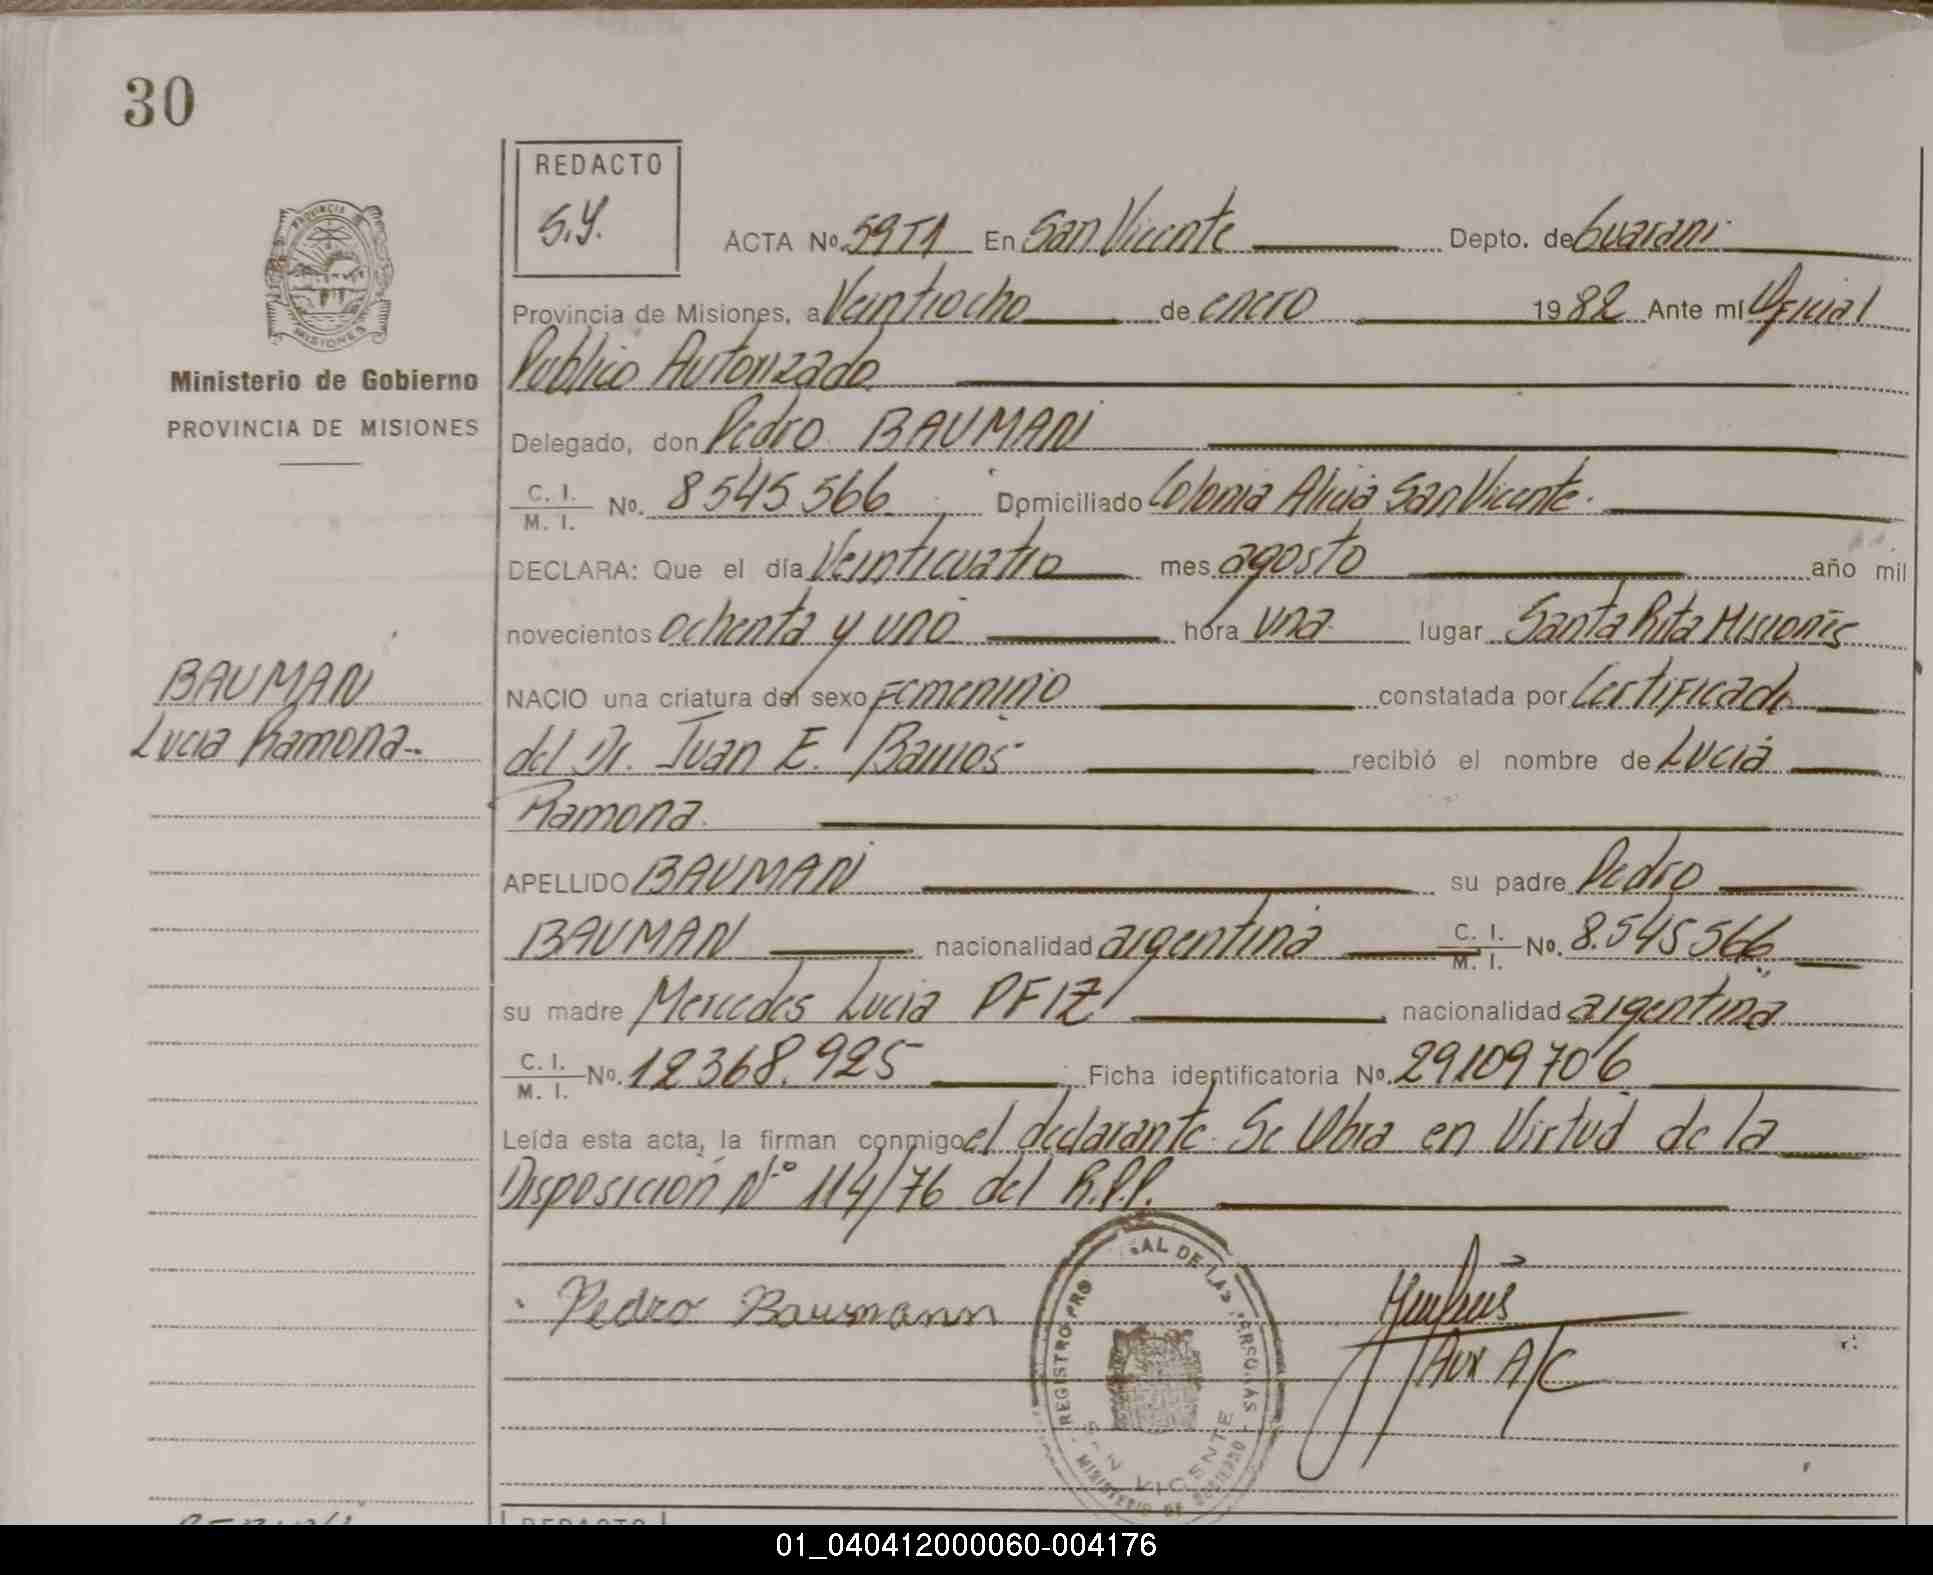 30
REDACTO
S.Y.
ACTA No. 59T1 En San Vicente Depto. de Guarani
Provincia de Misiones, a Veintiocho de enero 1982 Ante mi Oficial
Publico Autorizado
Ministerio de Gobierno
PROVINCIA DE MISIONES
Delegado, don Pedro BAUMAN
C. I.
M. I. No. 8545566 Domiciliado Colonia Alicia San Vicente.
DECLARA: Que el día Veinticuatro mes agosto año mil
novecientos ochenta y uno hora una lugar Santa Rita Misiones
BAUMAN
Lucia Ramona..
NACIO una criatura del sexo Femenino constatada por Certificado
del Dr. Juan E. Barrios recibió el nombre de Lucia
Ramona.
APELLIDO BAUMAN su padre Pedro
BAUMAN nacionalidad argentina C. I. M. I. No. 8.545566
su madre Mercedes Lucia PFIZ nacionalidad argentina
C. I.
M. I. No. 12368.925 Ficha identificatoria No. 29109706
Leída esta acta, la firman conmigo el declarante. Se Obra en Virtud de la
Disposición Nº 114/76 del R.P.P.
Pedro Baumann
REGISTRO PRO AL DE LAS PERSONAS
SAN VICENTE
MINISTERIO DE GOBIERNO
Aux A/C
REDACTO
01_040412000060-004176